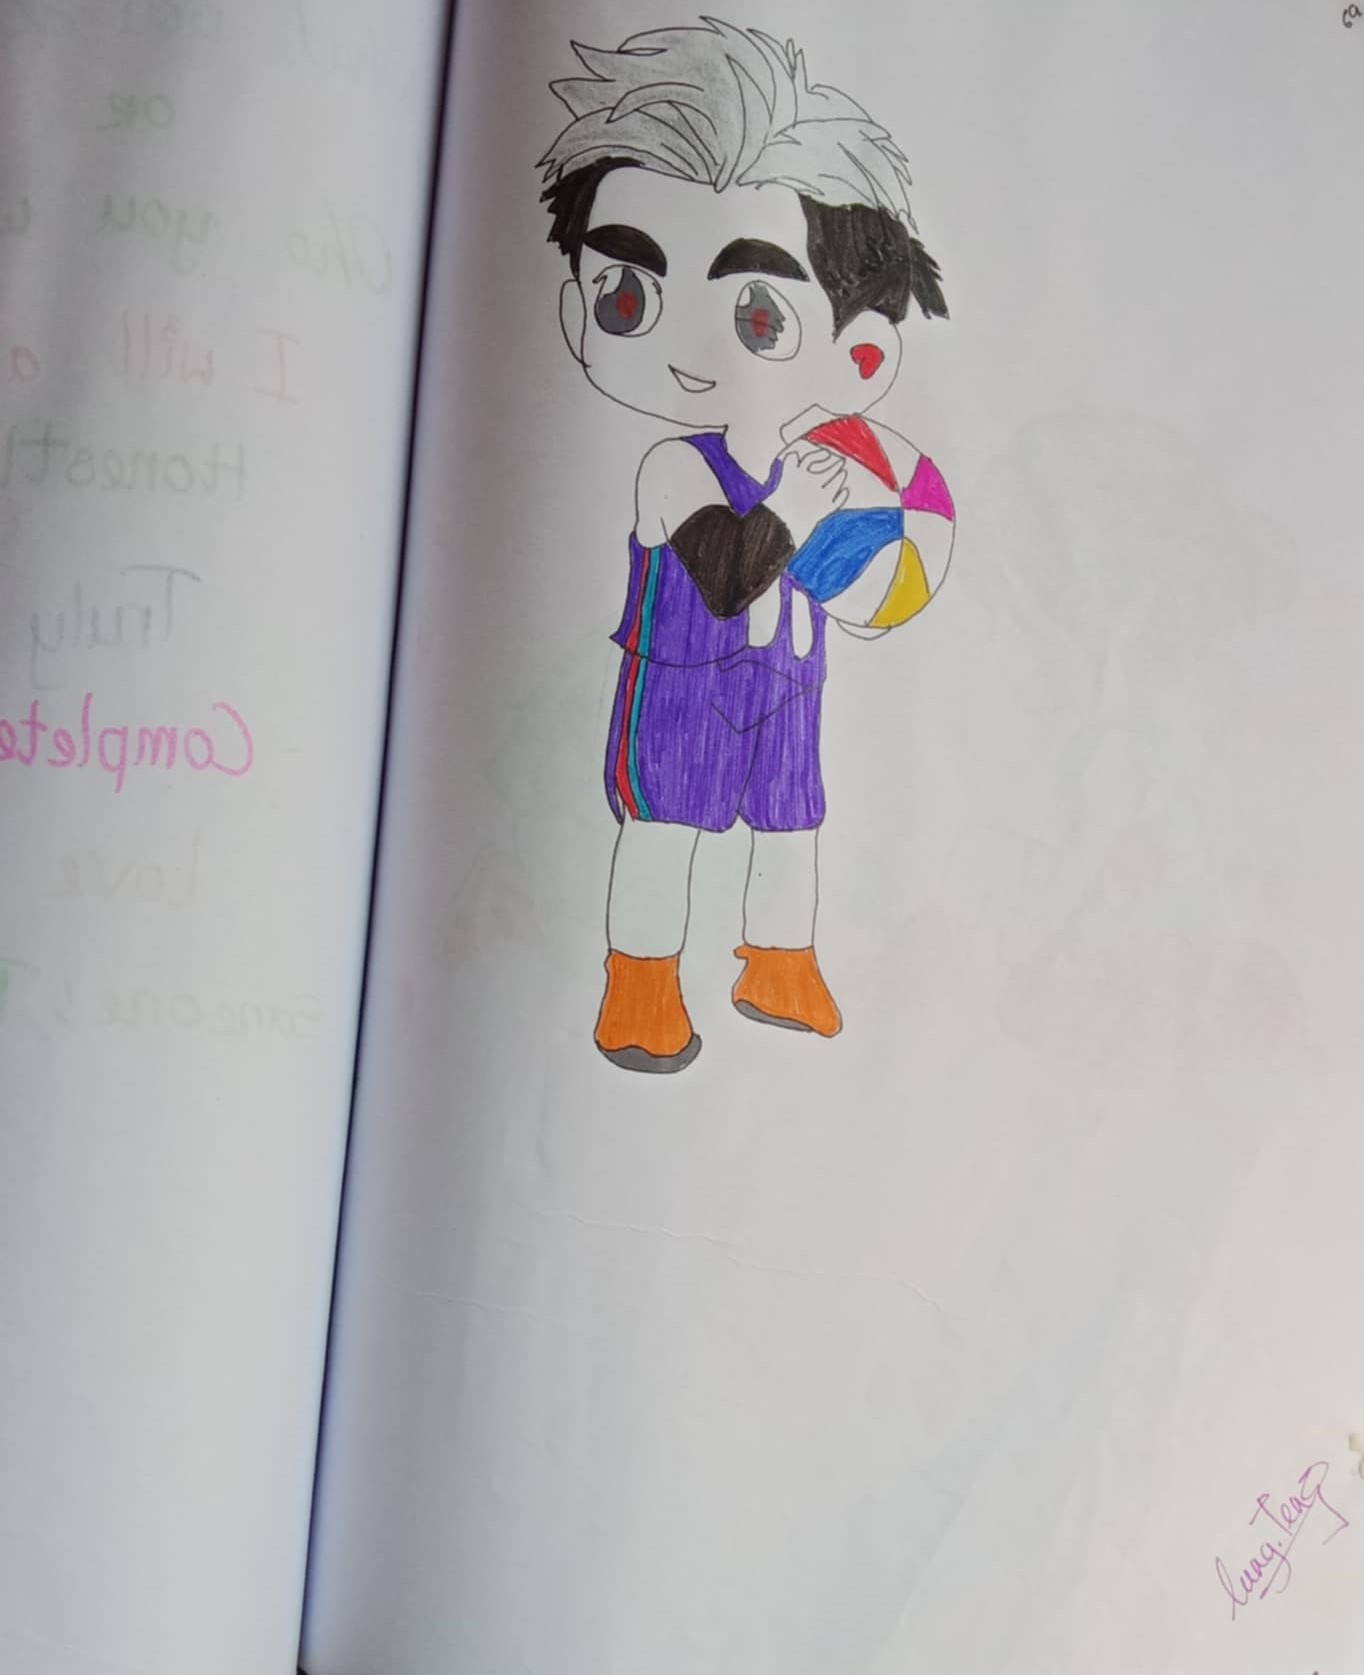 69
or
Who you
I will a
Honestl
Truly
Complete
Love
Someone!
Lung.Teng